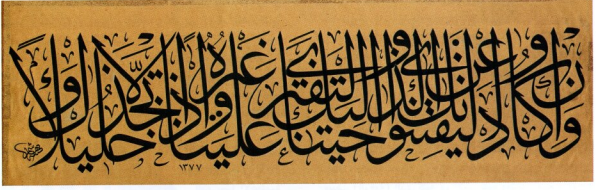 وَإِن كَادُوا لَيَفْتِنُونَكَ عَنِ الَّذِي أَوْحَيْنَا إِلَيْكَ لِتَفْتَرِيَ عَلَيْنَا غَيْرَهُ وَإِذًا لَاتَّخَذُوكَ خَلِيلًا
١٣٧٧